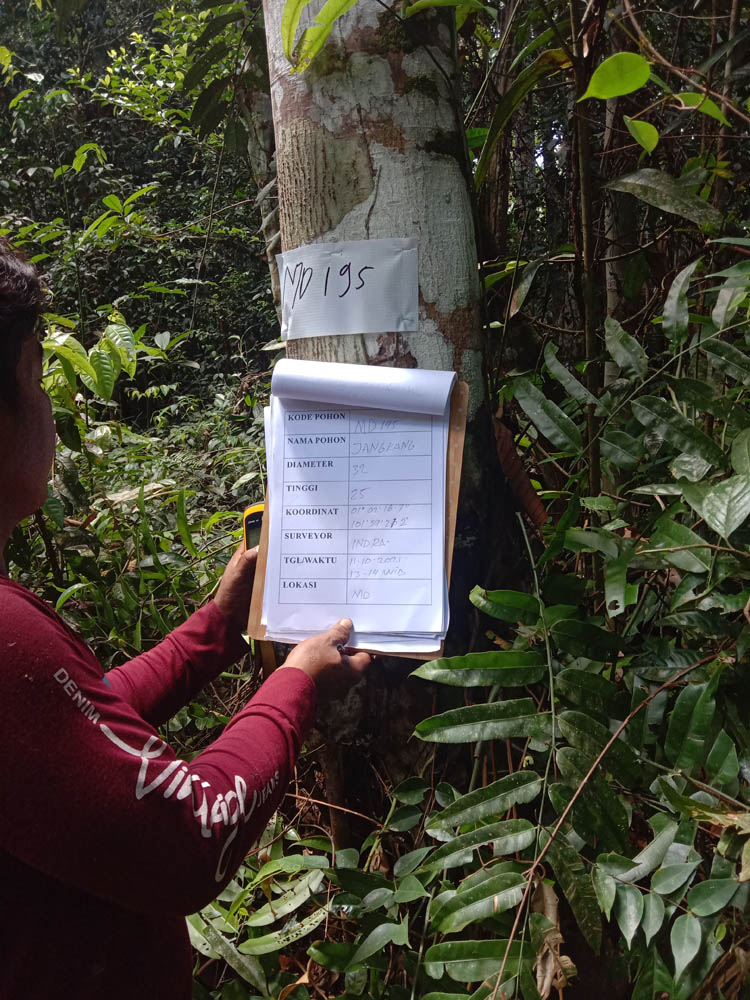 MD 195
KODE POHON MD 195
NAMA POHON JANGKANG
DIAMETER 32
TINGGI 25
KOORDINAT 01° 02' 16.7"
101° 57'
SURVEYOR INDRA
TGL/WAKTU 11-10-2021
13-14 WIB
LOKASI MD
DENIM
Vintage
JEANS